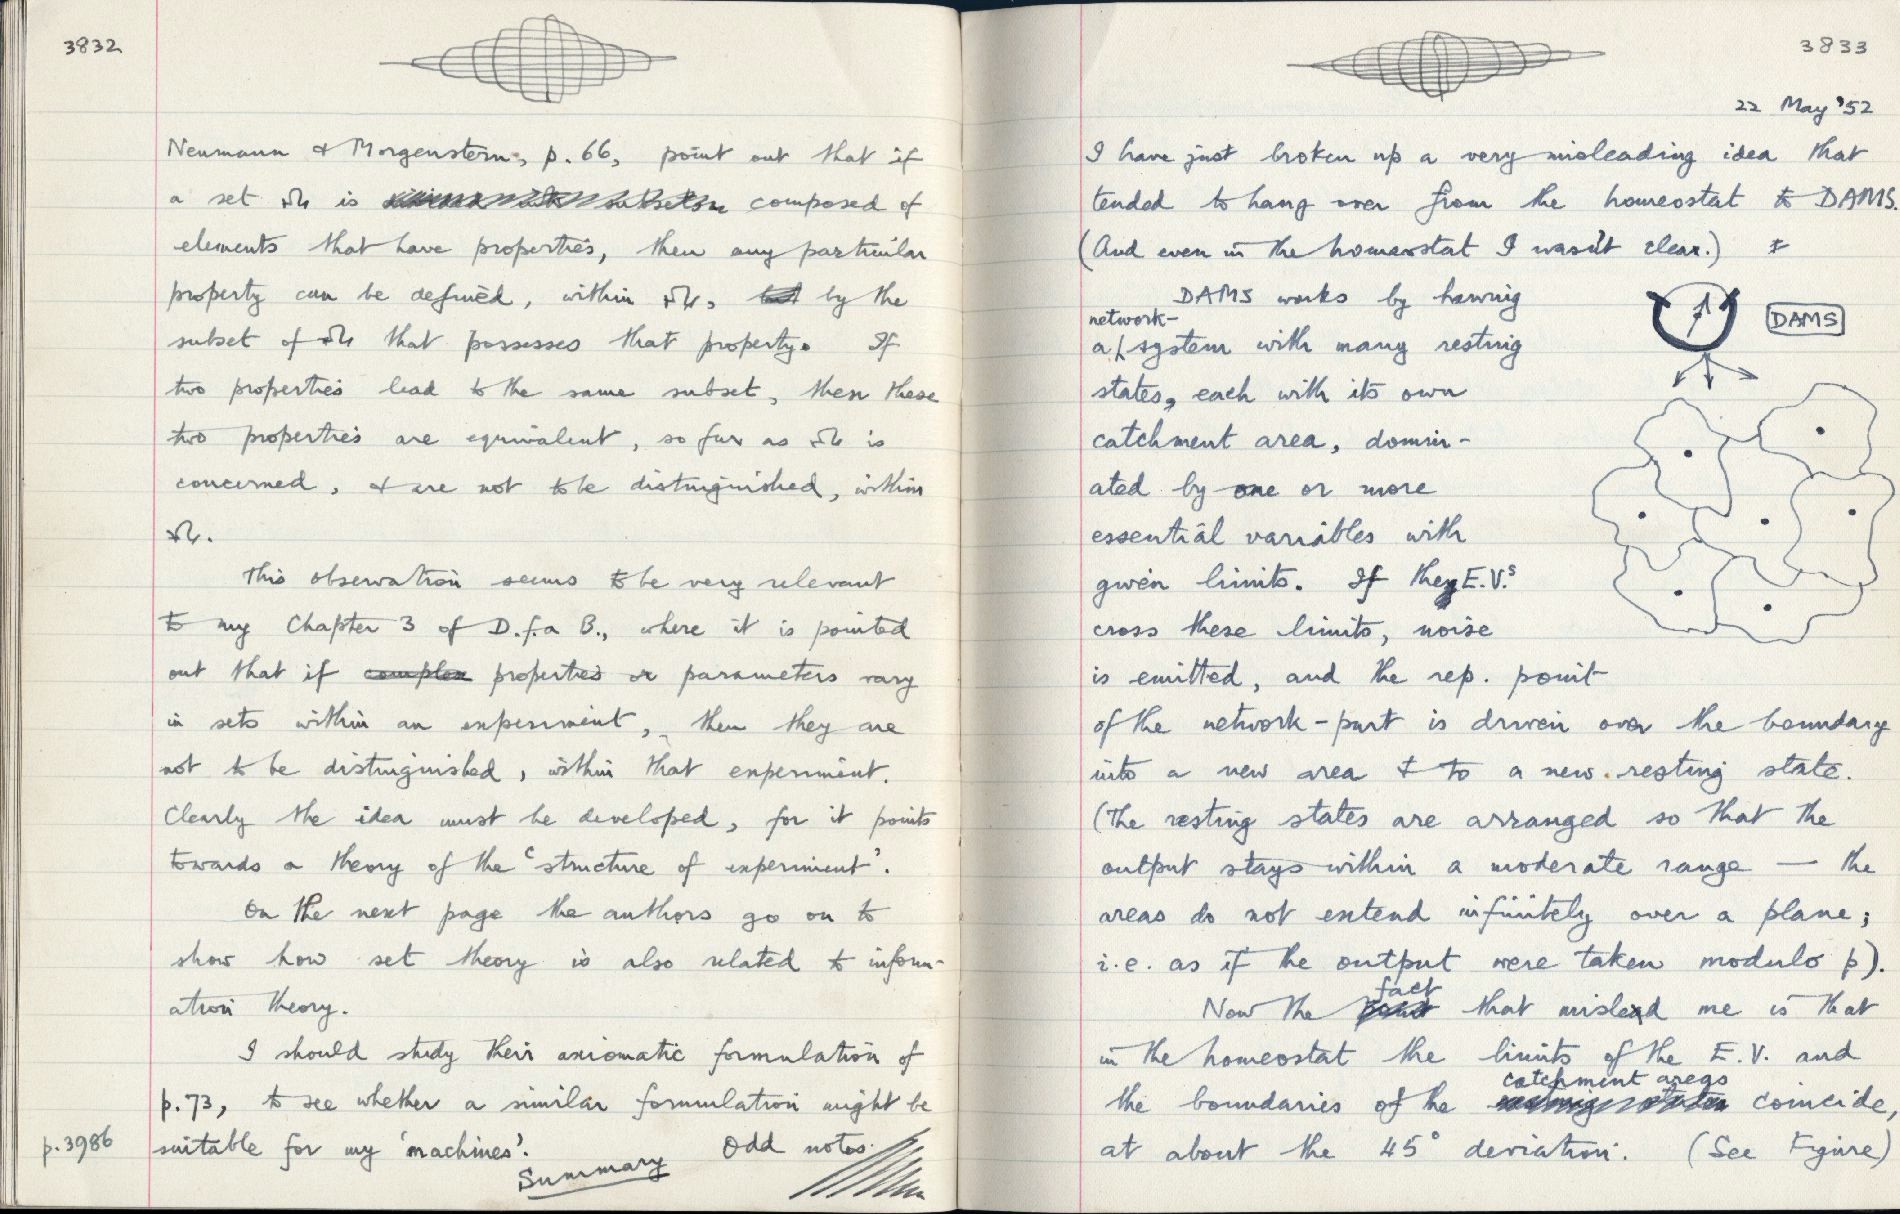 3832
Neumann & Morgenstern, p. 66, point out that if
a set Ω is composed of
elements that have properties, then any particular
property can be defined, within Ω, by the
subset of Ω that possesses that property. If
two properties lead to the same subset, then these
two properties are equivalent, so far as Ω is
concerned, & are not to be distinguished, within
Ω.
This observation seems to be very relevant
to my Chapter 3 of D.f.a B., where it is pointed
out that if complex properties or parameters vary
in sets within an experiment, then they are
not to be distinguished, within that experiment.
Clearly the idea must be developed, for it points
towards a theory of the 'structure of experiment'.
On the next page the authors go on to
show how set theory is also related to inform-
ation theory.
I should study their axiomatic formulation of
p.73, to see whether a similar formulation might be
p.3986
suitable for my 'machines'. Odd notes
Summary
3833
22 May '52
I have just broken up a very misleading idea that
tended to hang over from the homeostat to DAMS.
(And even in the homeostat I wasn't clear.)
DAMS works by having
network-
a / system with many resting
states, each with its own
catchment area, domin-
ated by one or more
essential variables with
given limits. If the E.V.s
cross these limits, noise
is emitted, and the rep. point
of the network-part is driven over the boundary
into a new area & to a new resting state.
(The resting states are arranged so that the
output stays within a moderate range — the
areas do not extend infinitely over a plane;
i.e. as if the output were taken modulo p).
fact
Now the point that mislead me is that
in the homeostat the limits of the E.V. and
catchment areas
the boundaries of the resting states coincide,
at about the 45° deviation. (See Figure)
DAMS